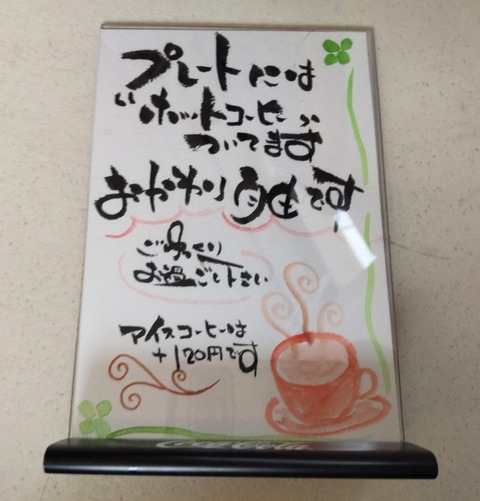 プレートには
"ホットコーヒー"
ついてます
おかわり自由です
ごゆっくり
お過ごし下さい
アイスコーヒーは
+120円です
Coca-Cola